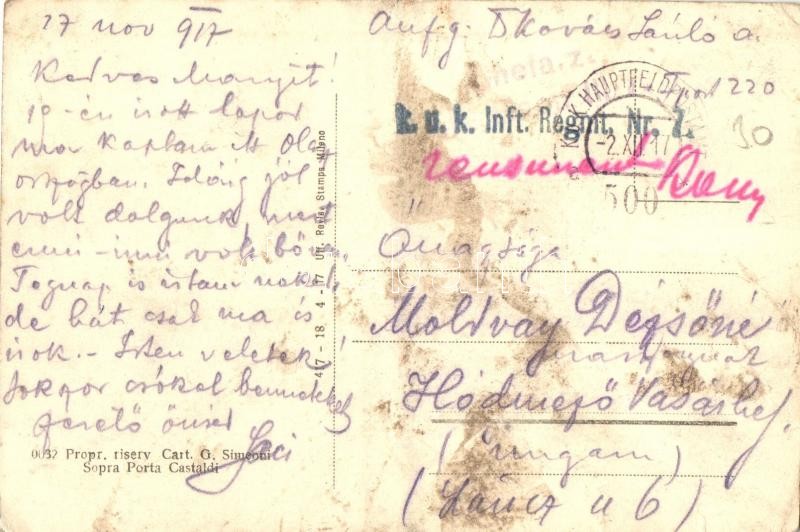 27 nov 917
Kedves Manyit!
19-én írott lapod
ma kaptam itt Olasz
országban. Idáig jól
volt dolgunk, mert
enni-inni volt bőven.
Tegnap is írtam nektek,
de hát csak ma is
írok. - Isten veletek
sokszor csókol benneteket
szerető öcséd
Laci
0032 Propr. riserv Cart. G. Simeoni
Sopra Porta Castaldi
417 - 18 - 4 - 17 Uff. Revis. Stampa Milano
Aufg: Kovács László a.
Tpost 220
K. u. k. Inft. Regmt. Nr.
K. u. K. HAUPTFELDPOSTAMT
-2.XII.17
30
500
Őnagysága
Moldvay Dezsőné
Hódmező Vasárhely.
(Ungarn)
(Láncz u 6)